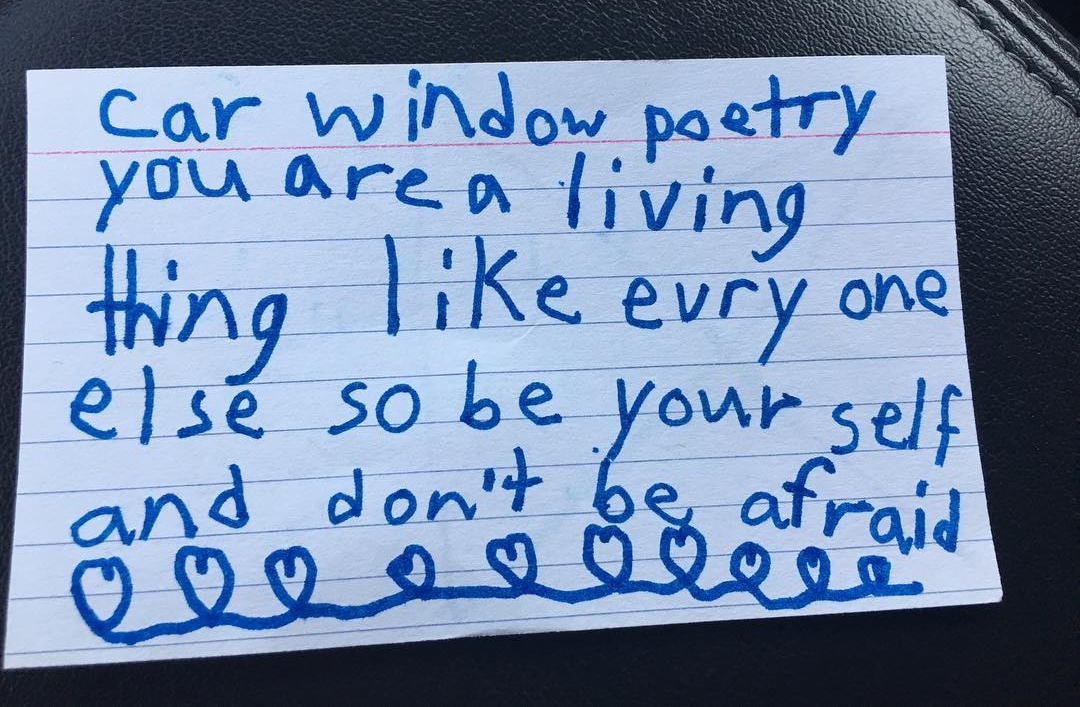 car window poetry
you are a living
thing like evry one
else so be your self
and don't be afraid